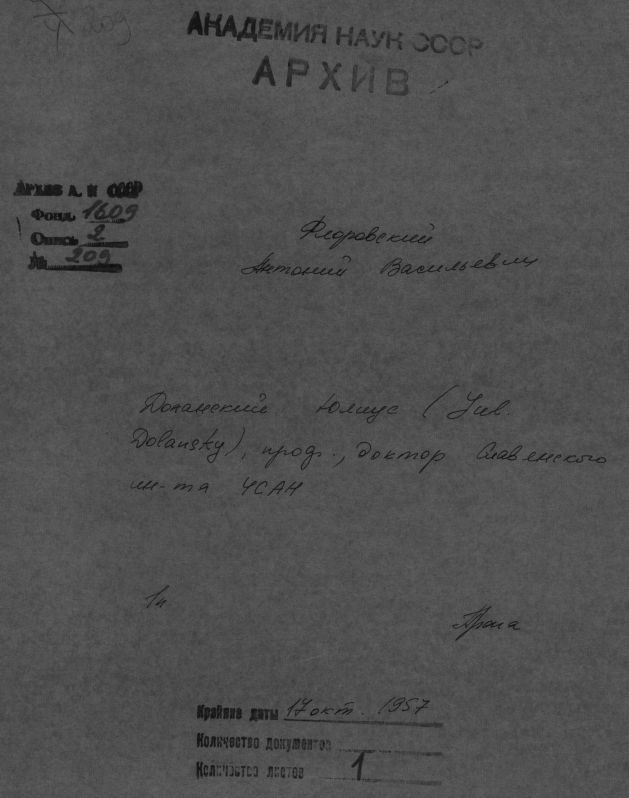 АКАДЕМИЯ НАУК СССР
АРХИВ
АРХИВ А. Н СССР
Фонд 1609
Опись 2
№ 209
Флоровский
Антоний Васильевич
Доланский Юлиус (Jul.
Dolansky), проф., доктор Славянского
ин-та ЧСАН
1п
Прага
Крайние даты 17 окт. 1957
Количество документов
Количество листов 1